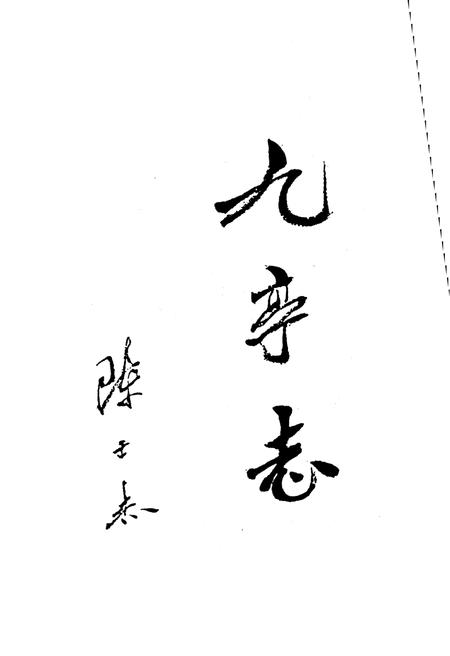 九亭志
陈士杰